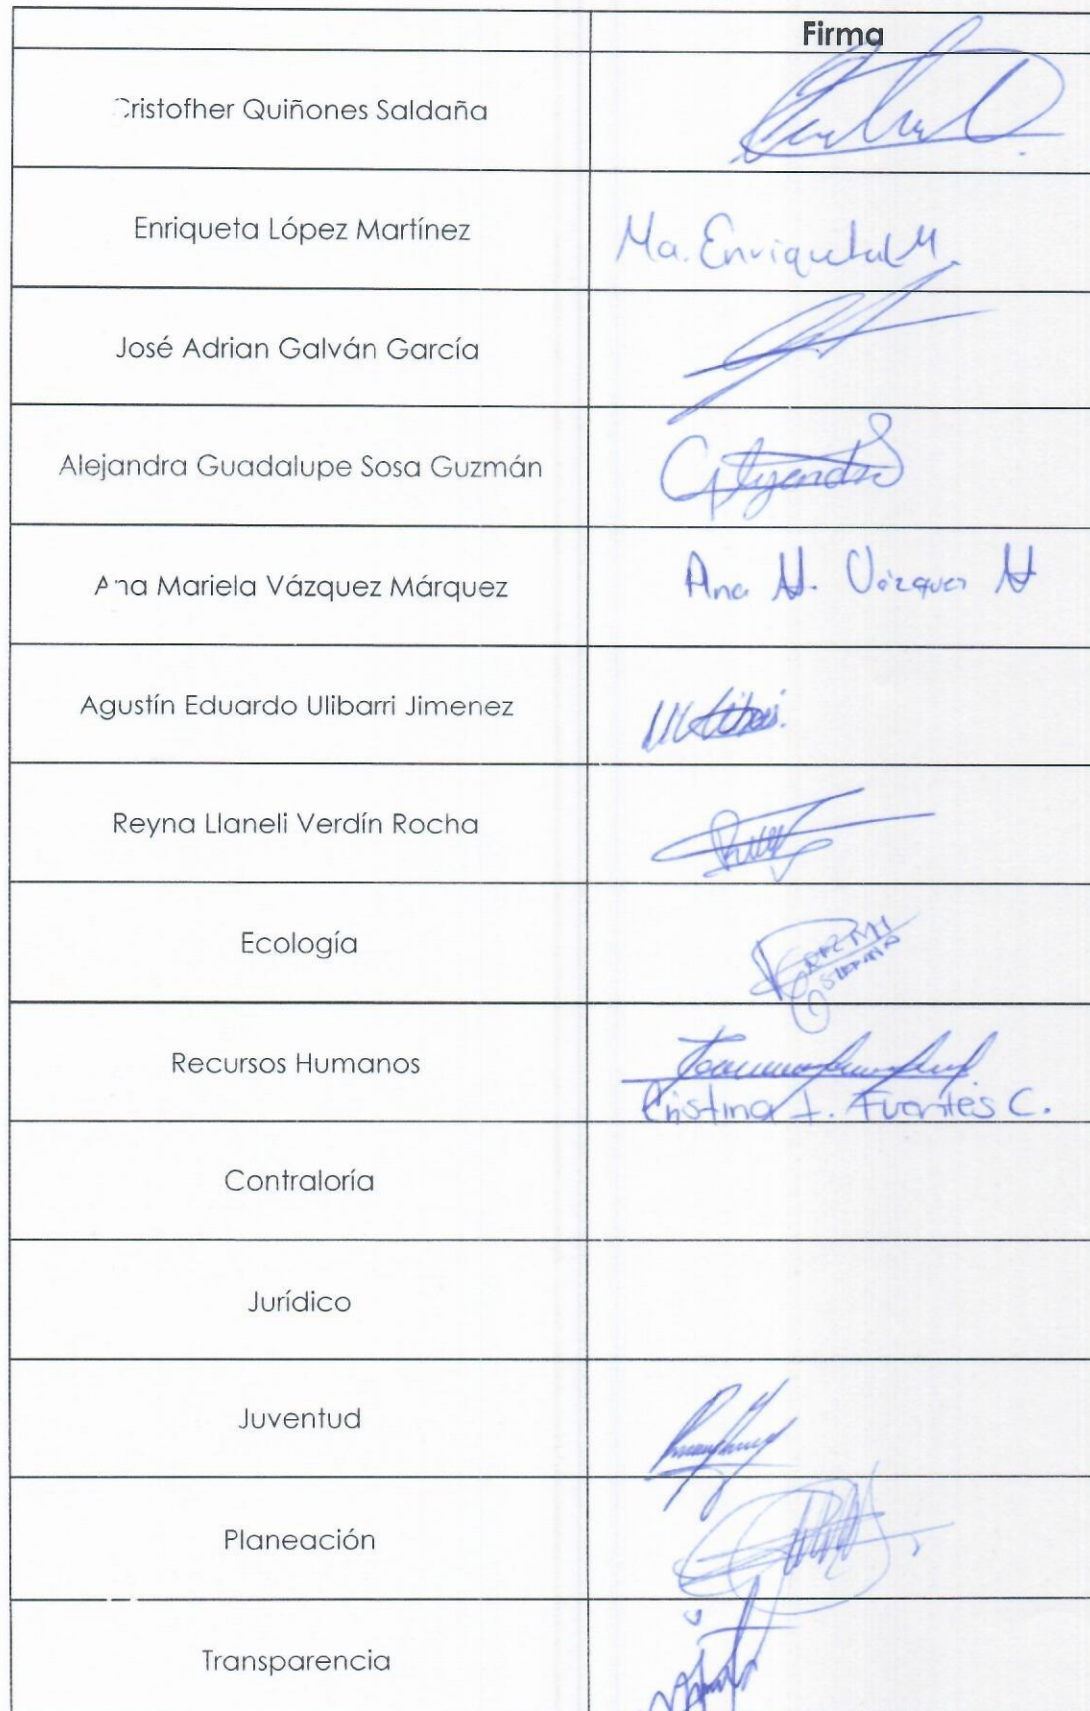 Firma
Cristofher Quiñones Saldaña
Enriqueta López Martínez
Ma. Enriqueta L M.
José Adrian Galván García
Alejandra Guadalupe Sosa Guzmán
Ana Mariela Vázquez Márquez
Ana M. Vázquez M
Agustín Eduardo Ulibarri Jimenez
Reyna Llaneli Verdín Rocha
Ecología
Recursos Humanos
Cristina I. Fuentes C.
Contraloría
Jurídico
Juventud
Planeación
Transparencia